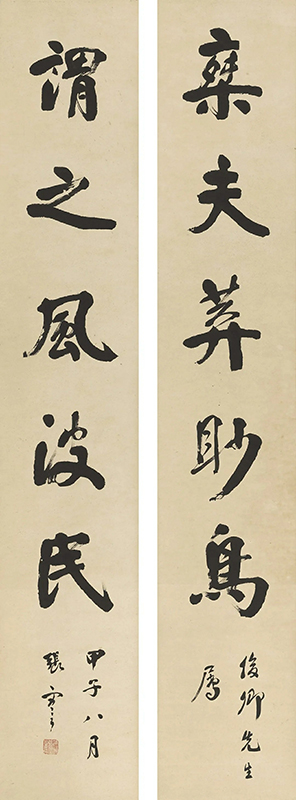 椉夫莽眇鳥
俊卿先生
屬
謂之風波民
甲子八月
張謇